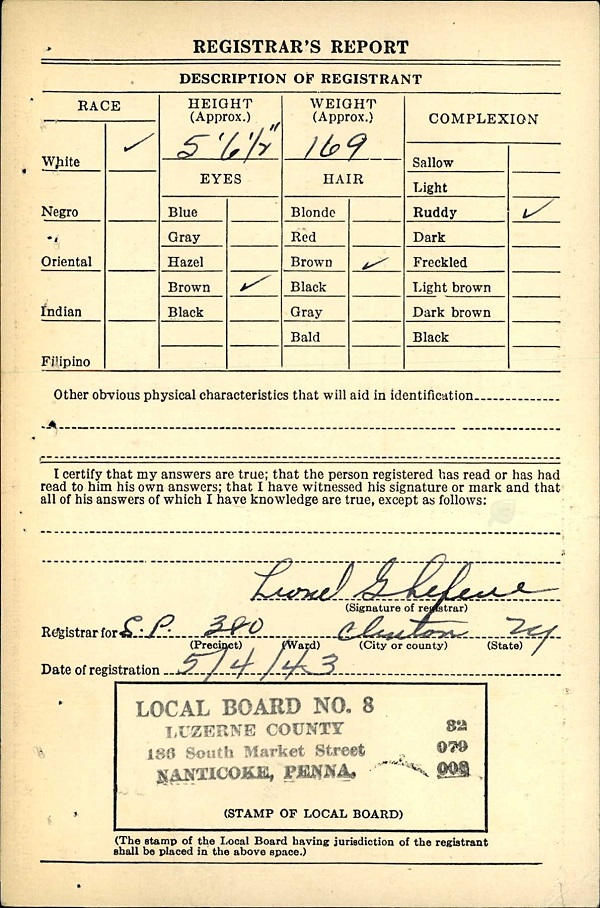 REGISTRAR'S REPORT
DESCRIPTION OF REGISTRANT
RACE
HEIGHT
(Approx.)
WEIGHT
(Approx.)
COMPLEXION
5' 6 1/2"
169
White ✓
EYES
HAIR
Sallow
Light
Negro
Blue
Blonde
Ruddy ✓
Gray
Red
Dark
Oriental
Hazel
Brown ✓
Freckled
Brown ✓
Black
Light brown
Indian
Black
Gray
Dark brown
Bald
Black
Filipino
Other obvious physical characteristics that will aid in identification
I certify that my answers are true; that the person registered has read or has had
read to him his own answers; that I have witnessed his signature or mark and that
all of his answers of which I have knowledge are true, except as follows:
Lionel G
(Signature of registrar)
Registrar for S.P. 380 Clinton NY
(Precinct) (Ward) (City or county) (State)
Date of registration 5/4/43
LOCAL BOARD NO. 8
LUZERNE COUNTY 32
186 South Market Street 079
NANTICOKE, PENNA. 008
(STAMP OF LOCAL BOARD)
(The stamp of the Local Board having jurisdiction of the registrant
shall be placed in the above space.)